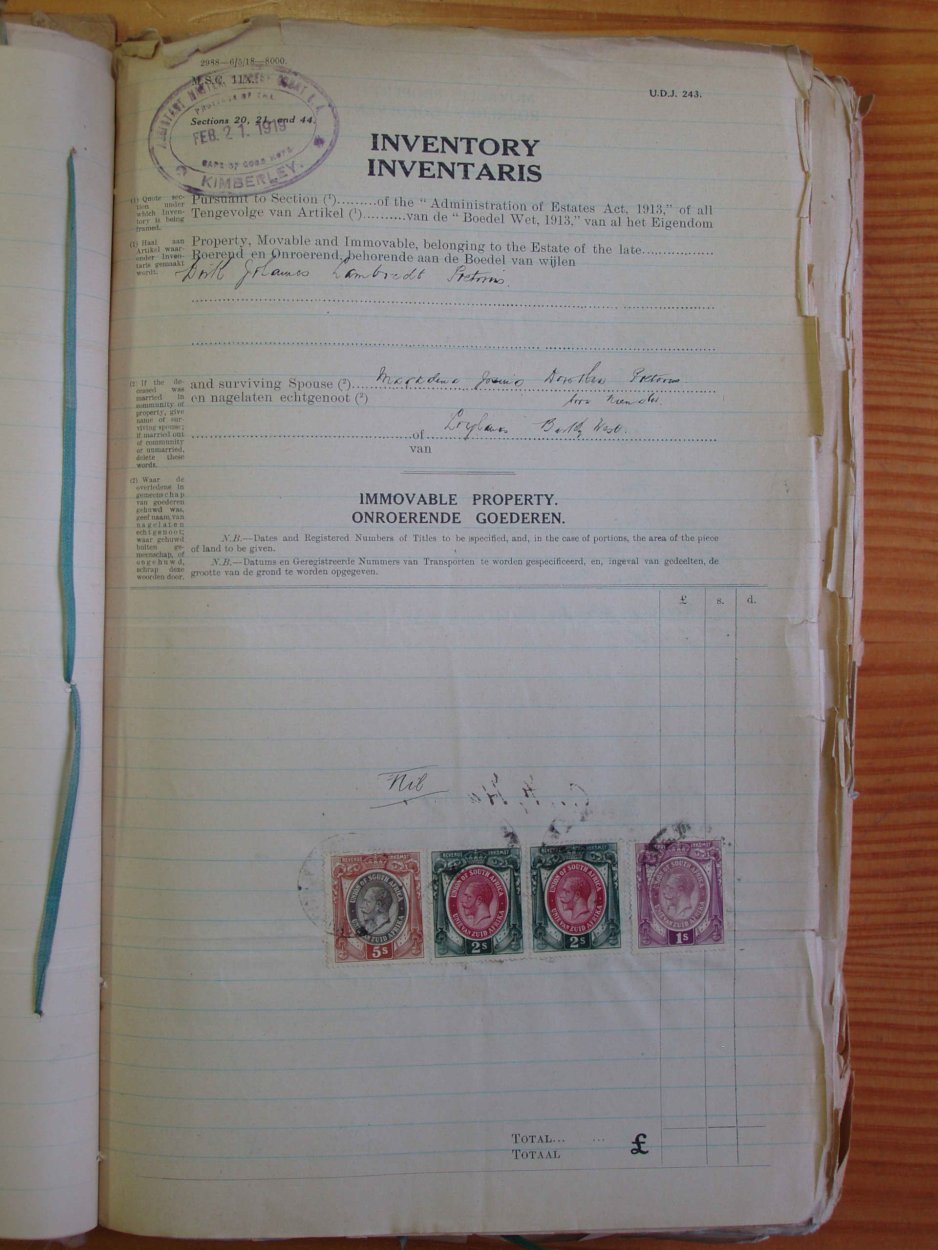 2988—6/5/18—8000.
M.S.C. 11X.
U.D.J. 243.
Sections 20, 21, and 44.
ASSISTANT MASTER SUPREME COURT S.A.
PROVINCE OF THE
FEB. 21. 1919
CAPE OF GOOD HOPE
KIMBERLEY.
INVENTORY
INVENTARIS
(1) Quote sec-
tion under
which Inven-
tory is being
framed.
Pursuant to Section (¹).........of the “ Administration of Estates Act, 1913,” of all
Tengevolge van Artikel (¹)..........van de “ Boedel Wet, 1913,” van al het Eigendom
(1) Haal aan
Artikel waar-
onder Inven-
taris gemaakt
wordt.
Property, Movable and Immovable, belonging to the Estate of the late
Roerend en Onroerend, behorende aan de Boedel van wijlen
Johannes Lambrecht Pretorius.
(2) If the de-
ceased was
married in
community of
property, give
name of sur-
viving spouse;
if married out
of community
or unmarried,
delete these
words.
and surviving Spouse (²) Magdalena Josina Dorothea Pretorius
en nagelaten echtgenoot (²) born
of Barkly West.
van
(2) Waar de
overledene in
gemeenschap
van goederen
gehuwd was,
geef naam van
nagelaten
echtgenoot;
waar gehuwd
buiten ge-
meenschap, of
ongehuwd,
schrap deze
woorden door.
IMMOVABLE PROPERTY.
ONROERENDE GOEDEREN.
N.B.—Dates and Registered Numbers of Titles to be specified, and, in the case of portions, the area of the piece
of land to be given.
N.B.—Datums en Geregistreerde Nummers van Transporten te worden gespecificeerd, en, ingeval van gedeelten, de
grootte van de grond te worden opgegeven.
£ s. d.
Nil
REVENUE INKOMST
UNION OF SOUTH AFRICA
UNIE VAN ZUID AFRIKA
5s
REVENUE INKOMST
UNION OF SOUTH AFRICA
UNIE VAN ZUID AFRIKA
2s
REVENUE INKOMST
UNION OF SOUTH AFRICA
UNIE VAN ZUID AFRIKA
2s
UNION OF SOUTH AFRICA
UNIE VAN ZUID AFRIKA
1s
TOTAL... ... £
TOTAAL